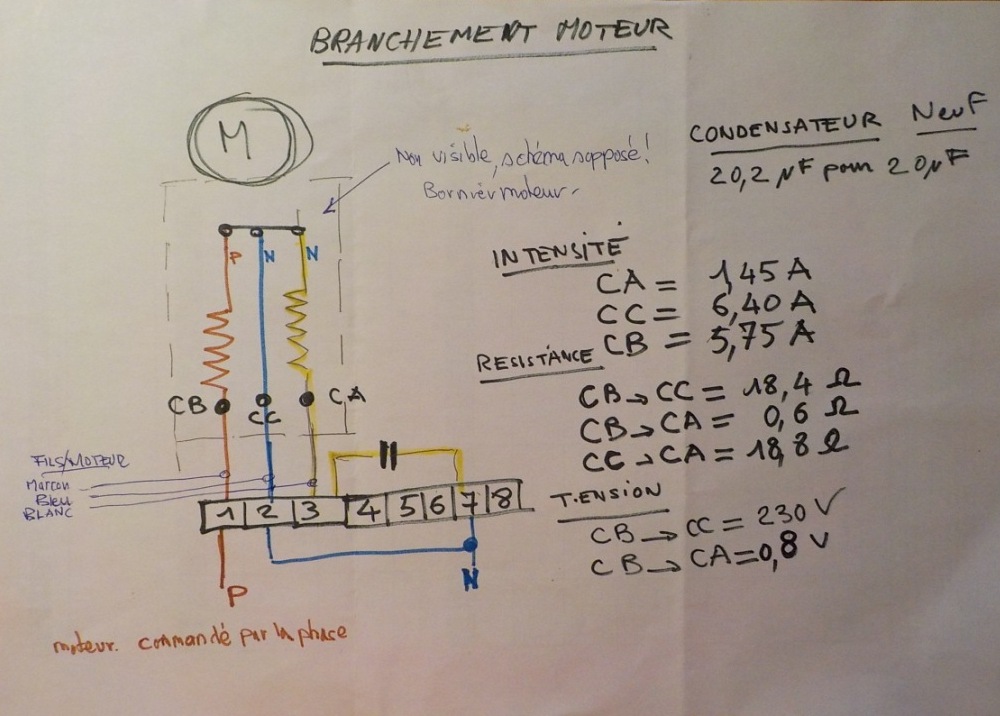 BRANCHEMENT MOTEUR
M
Non visible, schéma sopposé!
Bornier moteur.
CONDENSATEUR Neuf
20,2 µF pour 20µF
P N N
INTENSITÉ
CA = 1,45 A
CC = 6,40 A
CB = 5,75 A
RESISTANCE
CB → CC = 18,4 Ω
CB → CA = 0,6 Ω
CC → CA = 18,8 Ω
CB CC CA
FILS/MOTEUR
Marron
Bleu
BLANC
1 2 3 4 5 6 7 8
TENSION
CB → CC = 230 V
CB → CA = 0,8 V
P
N
moteur. commandé par la phase